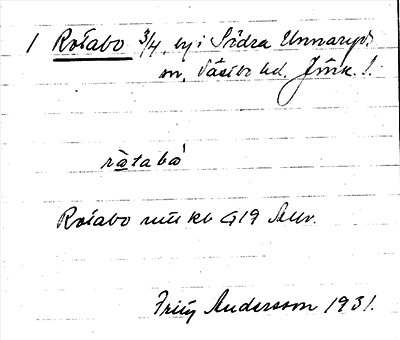 1 Rotabo 3/4, by i Södra Unnaryds
sn, Västbo hd. Jönk. l.
ràtabo
Rotabo mtl kb G19 Aur.
Fritz Andersson 1931.